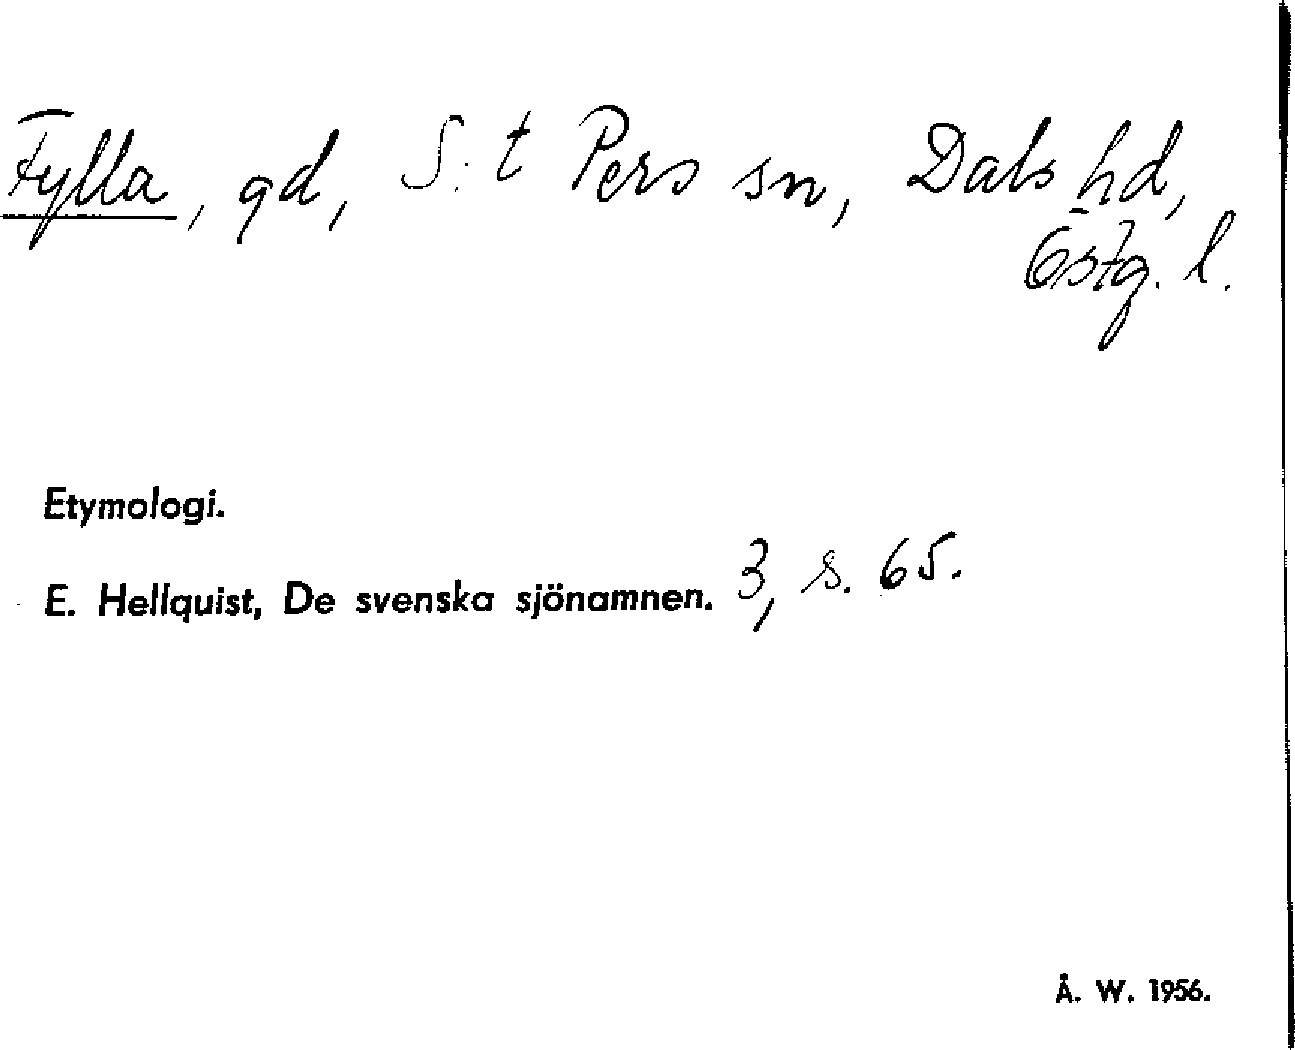 Fylla, gd, S:t Pers sn, Dals hd,
Östg. l.
Etymologi.
E. Hellquist, De svenska sjönamnen. 3, s. 65.
Å. W. 1956.